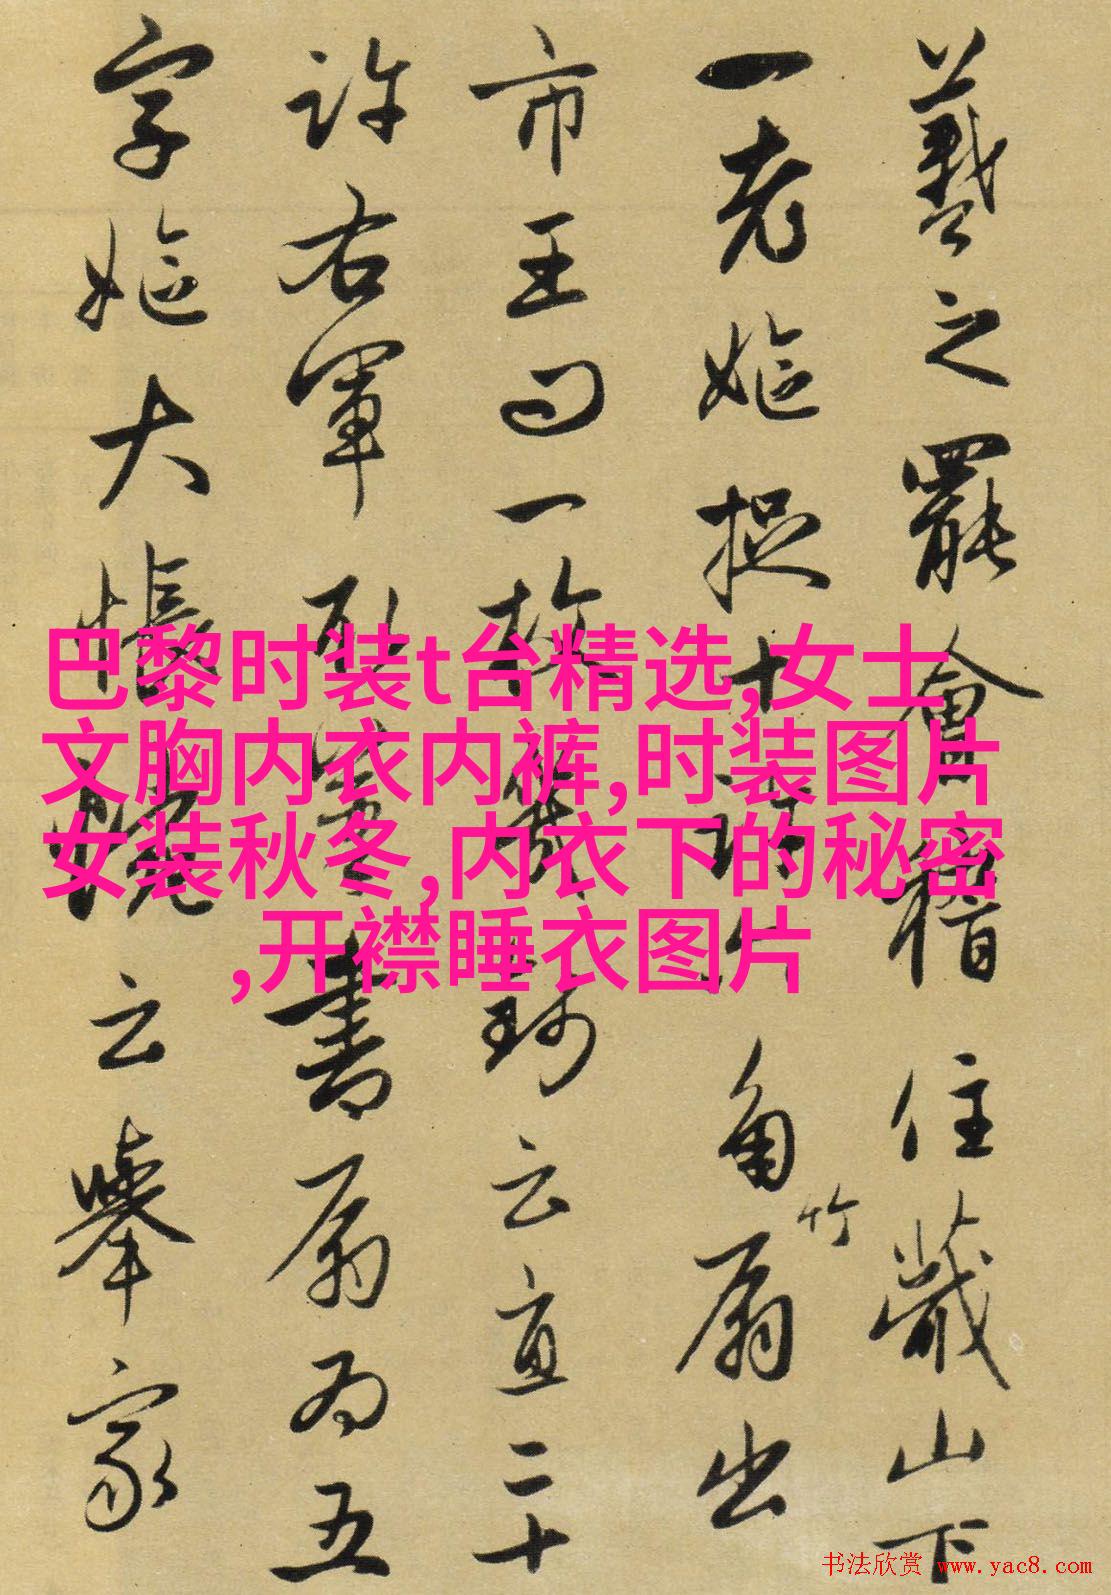 羲之罷會稽住蕺山下
一老嫗捉十許六角竹扇出
市王問一枚幾錢云直二十
許右軍取筆書扇為五
字嫗大悵惋云舉家
巴黎时装t台精选,女士
文胸内衣内裤,时装图片
女装秋冬,内衣下的秘密
,开襟睡衣图片
书法欣赏 www.yac8.com